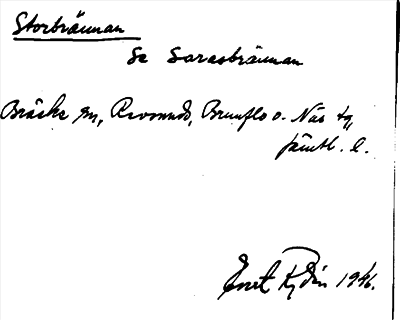 Storbrännan
Se Saresbrännan
Bräcke sn, Revsunds, Brunflo o. Näs tg,
Jämtl. l.
Ernst Rydin 1946.